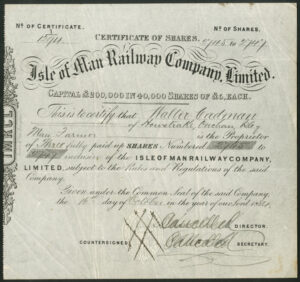 Nº OF CERTIFICATE.
Nº OF SHARES.
CERTIFICATE OF SHARES.
Isle of Man Railway Company, Limited.
CAPITAL £200,000 IN 40,000 SHARES OF £5, EACH.
This is to certify that Walter Cadman
of Howstrake, Onchan, Isle of
Man Farmer is the Proprietor
of Three fully paid up SHARES Numbered
inclusive of the ISLE OF MAN RAILWAY COMPANY,
LIMITED, subject to the Rules and Regulations of the said
Company.
Given under the Common Seal of the said Company,
the day of October in the year of our Lord
Cancelled DIRECTOR.
COUNTERSIGNED Cancelled SECRETARY.
IMRCL